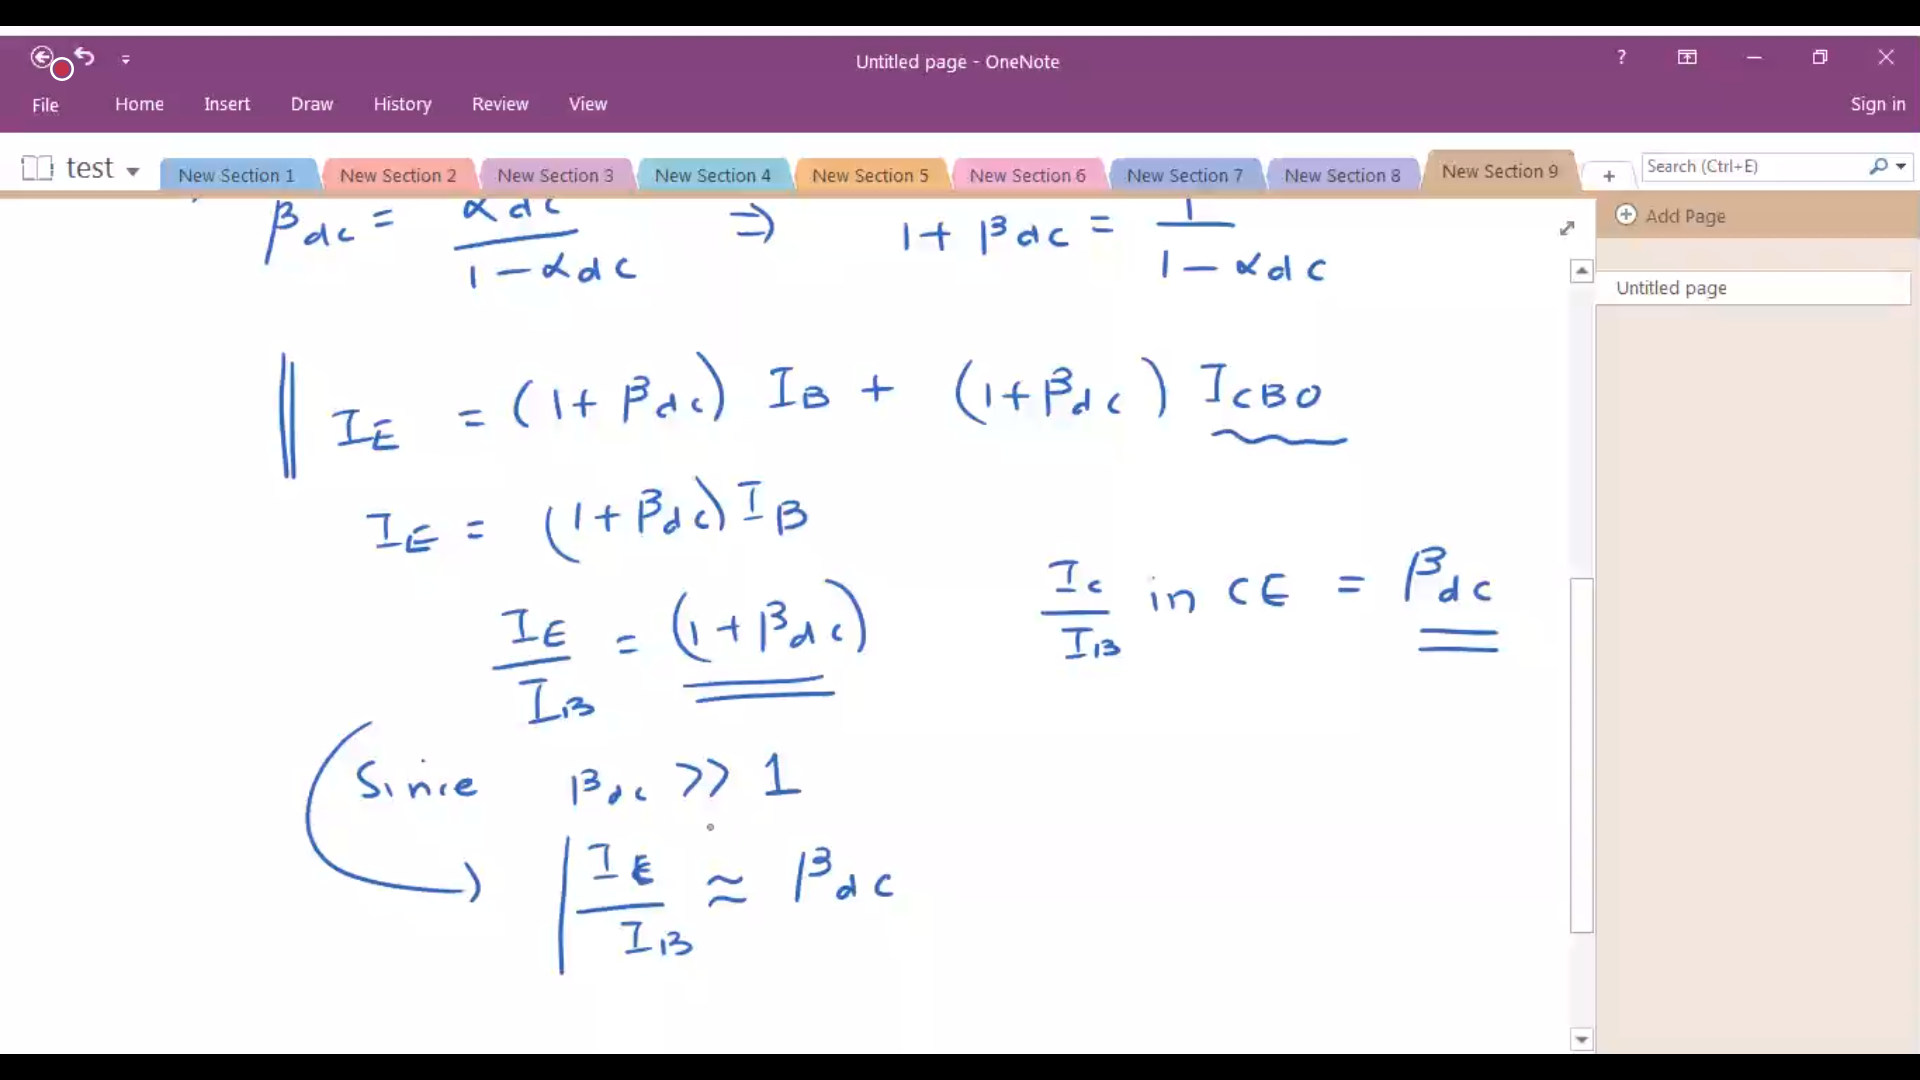 Untitled page - OneNote
?
File Home Insert Draw History Review View
Sign in
test
New Section 1 New Section 2 New Section 3 New Section 4 New Section 5 New Section 6 New Section 7 New Section 8 New Section 9 +
Search (Ctrl+E)
Add Page
Untitled page
β dc = α dc / 1 - α dc ⇒ 1 + β dc = 1 / 1 - α dc
I E = (1 + β dc) I B + (1 + β dc) I CBO
I E = (1 + β dc) I B
I E / I B = (1 + β dc)
I C / I B in CE = β dc
Since β dc >> 1
I E / I B ≈ β dc